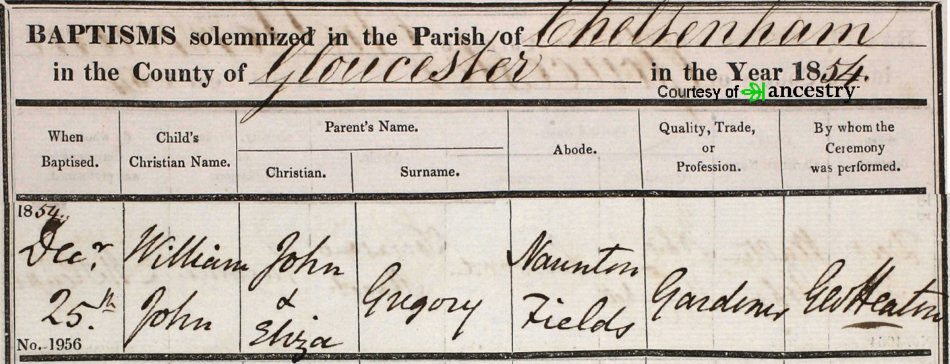 BAPTISMS solemnized in the Parish of Cheltenham
in the County of Gloucester in the Year 1854.
Courtesy of ancestry
When Baptised.
Child's Christian Name.
Parent's Name.
Christian.
Surname.
Abode.
Quality, Trade, or Profession.
By whom the Ceremony was performed.
1854.
Decr. 25th
No. 1956
William John
John & Eliza
Gregory
Naunton Fields
Gardener
Geo Heaton